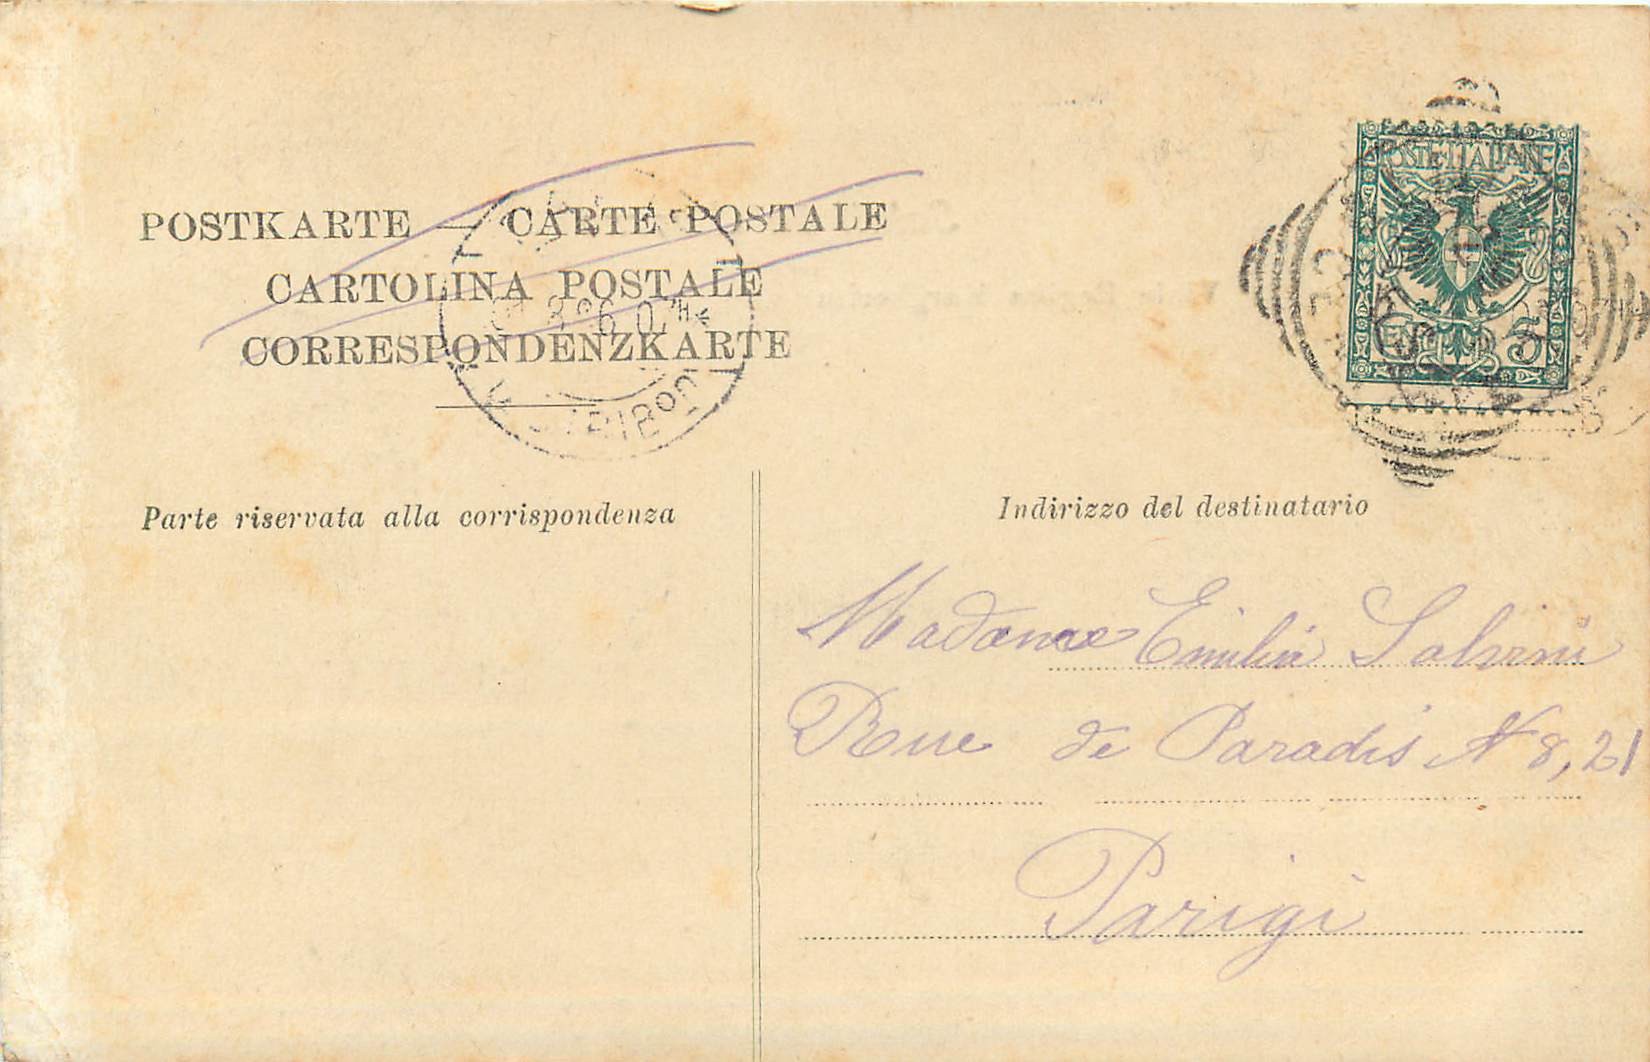 POSTE ITALIANE
C. 5
POSTKARTE — CARTE POSTALE
CARTOLINA POSTALE
CORRESPONDENZKARTE
DISTRIB
Parte riservata alla corrispondenza
Indirizzo del destinatario
Madame Emilia Salvini
Rue de Paradis N 8, 21
Parigi